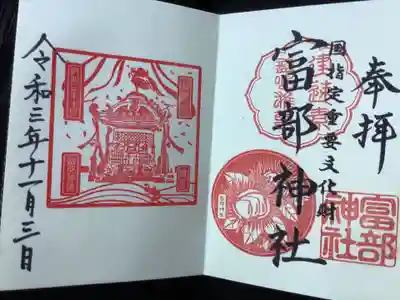 奉拝
国指定重要文化財
富部神社
富部
神社
令和三年十一月三日